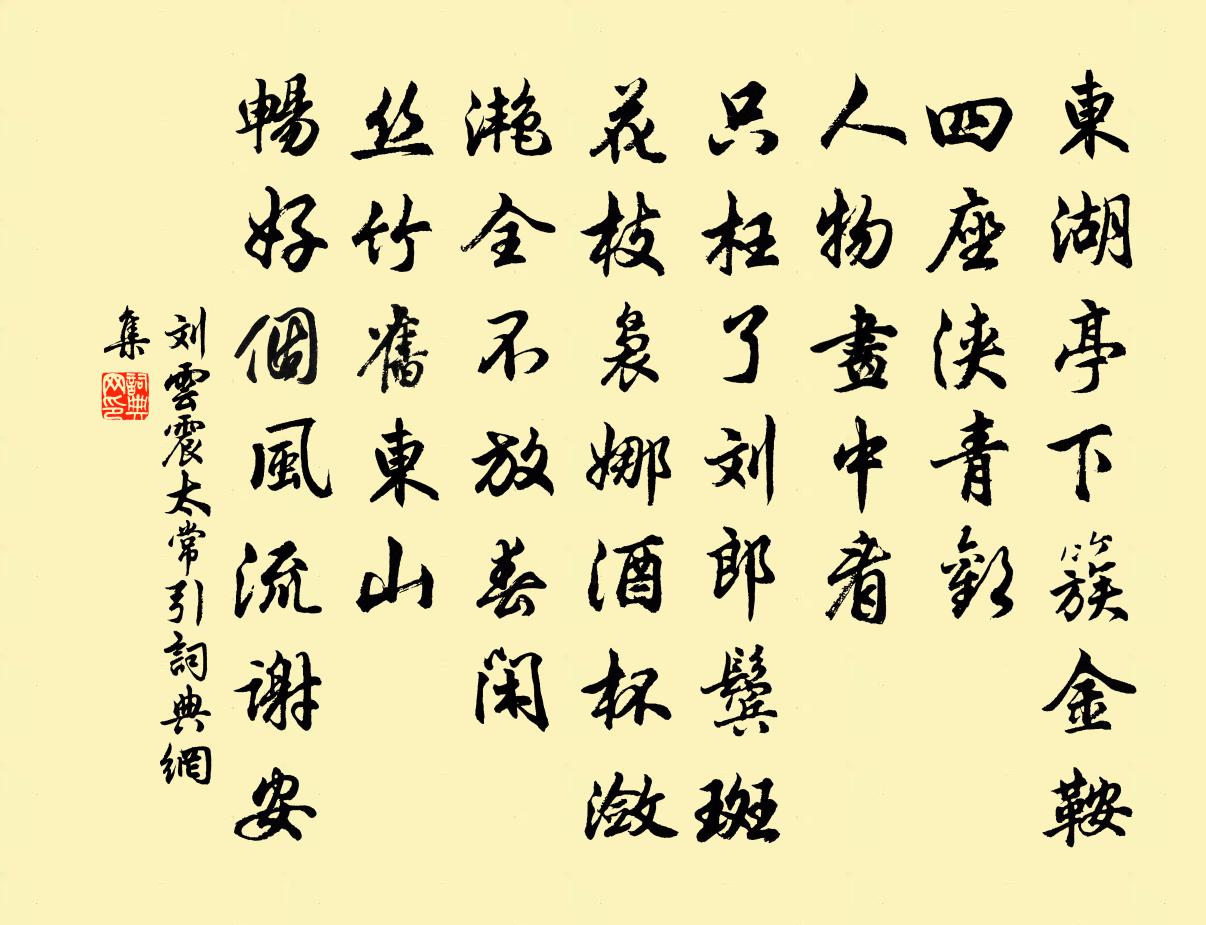 東湖亭下簇金鞍
四座浹青歡
人物畫中看
只枉了刘郎鬢斑
花枝裊娜酒杯瀲
灧全不放春閑
丝竹舊東山
暢好個風流谢安
刘雲震太常引詞典網
集
詞典网印